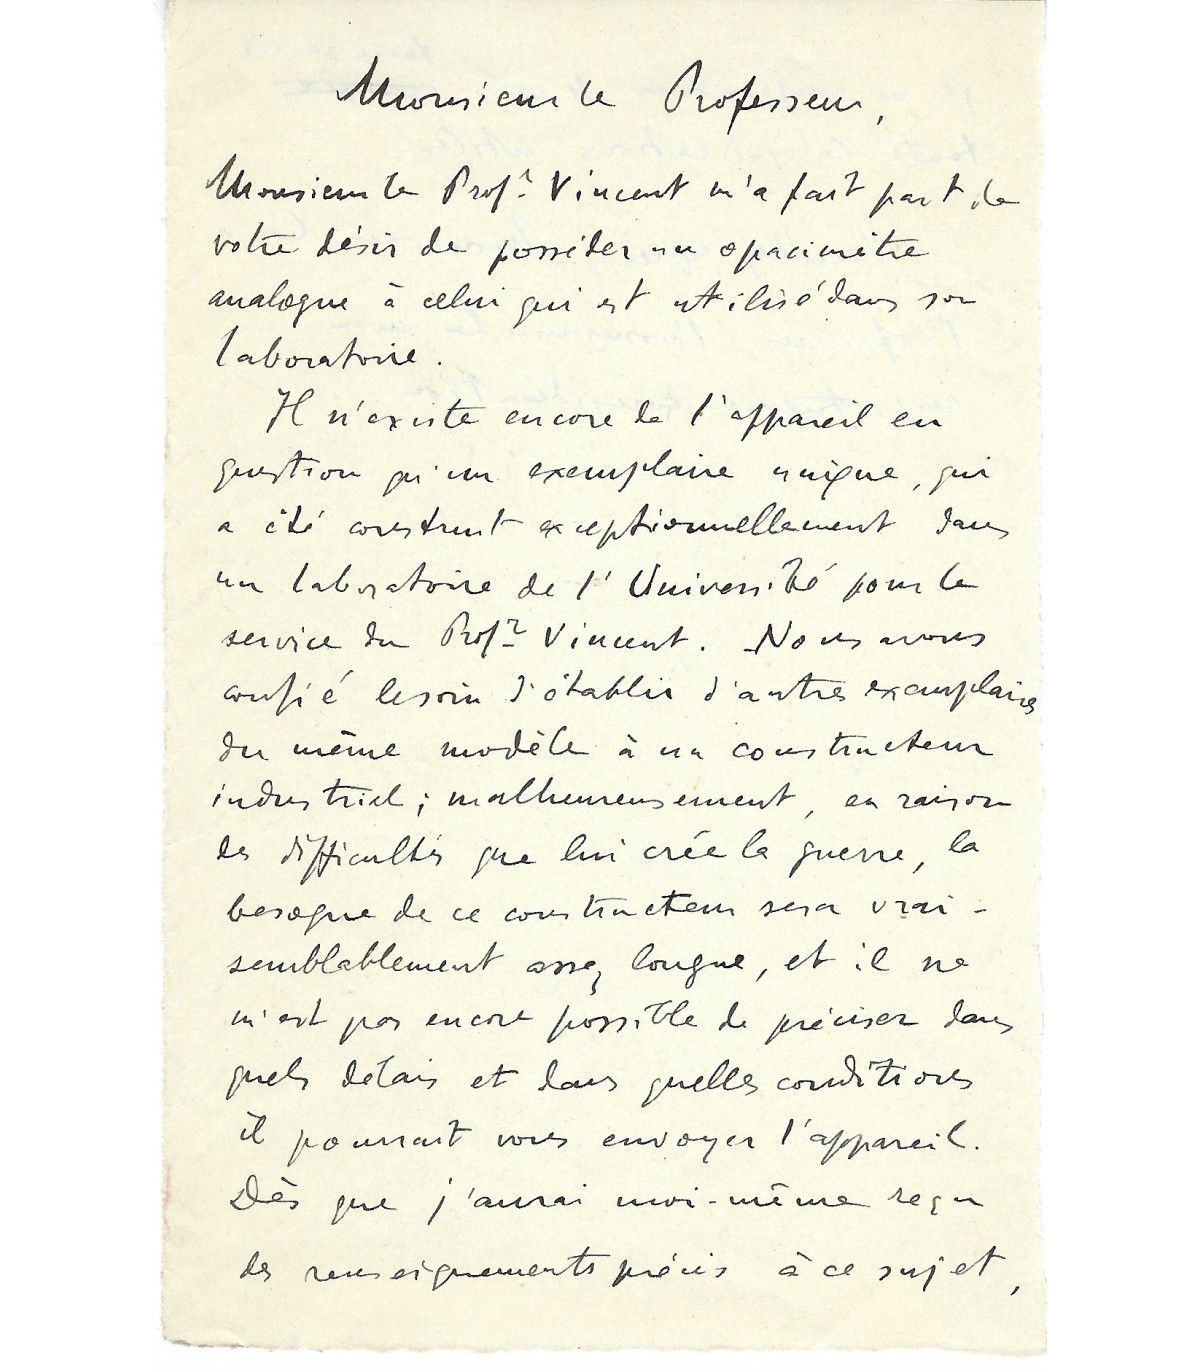 Monsieur le Professeur,
Monsieur le Profr Vincent m'a fait part de
votre désir de posséder un opacimètre
analogue à celui qui est utilisé dans son
laboratoire.
Il n'existe encore de l'appareil en
question qu'un exemplaire unique, qui
a été construit exceptionnellement dans
un laboratoire de l'Université pour le
service du Profr Vincent. Nous avons
confié le soin d'établir d'autres exemplaires
du même modèle à un constructeur
industriel; malheureusement, en raison
des difficultés que lui crée la guerre, la
besogne de ce constructeur sera vrai-
semblablement assez longue, et il ne
m'est pas encore possible de préciser dans
quels délais et dans quelles conditions
il pourrait vous envoyer l'appareil.
Dès que j'aurai moi-même reçu
des renseignements précis à ce sujet,